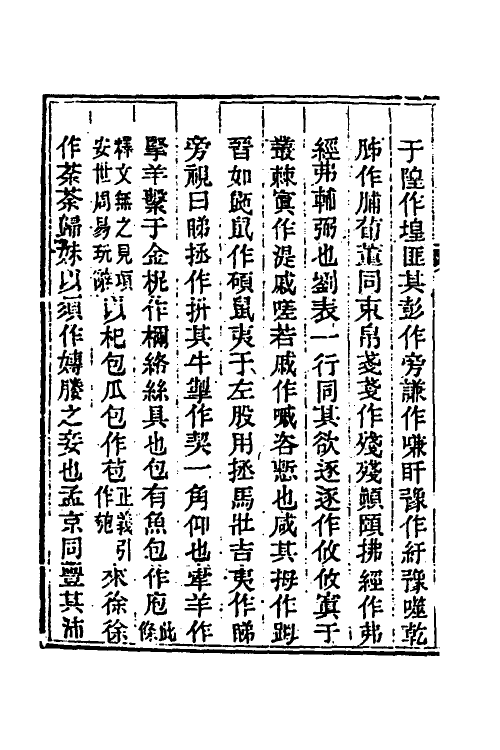 于隍作堭匪其彭作旁謙作嗛盱豫作紆豫噬乾
胏作脯荀董同束帛戔戔作殘殘顛頤拂經作弗
經弗輔弼也劉表一行同其欲逐逐作攸攸寘于
叢棘寘作湜戚嗟若戚作嘁咨慙也咸其拇作䟦
晉如鼫鼠作碩鼠夷于左股用拯馬壯吉夷作睇
旁視曰睇拯作拼其牛掣作契一角仰也牽羊作
掔羊繫于金柅作檷絡絲具也包有魚包作庖此條
釋文無之見項安世周易玩辭以杞包瓜包作苞正義引作匏來徐徐
作荼荼歸妹以須作嬬媵之妾也孟京同豐其沛